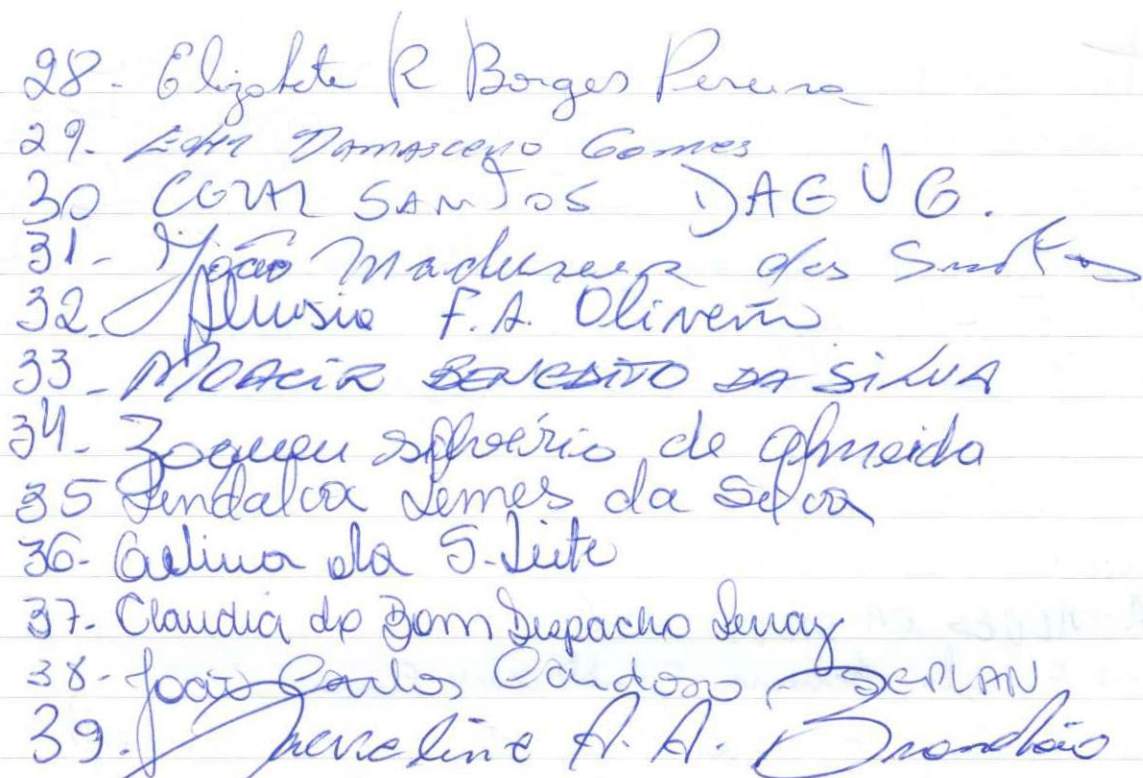 28- Elizabete R Borges Pereira
29- Edir Damasceno Gomes
30 SANTOS DAE VG.
31- João Madureira dos Santos
32- Aluisio F.A. Oliveira
33- MOACIR BENEDITO DA SILVA
34- Silvério de Almeida
35 Lindalva Lemes da Silva
36- Celina da S. Leite
37- Claudia do Bom Despacho
38- João Carlos Cardoso - SEPLAN
39. A. A. Brandão